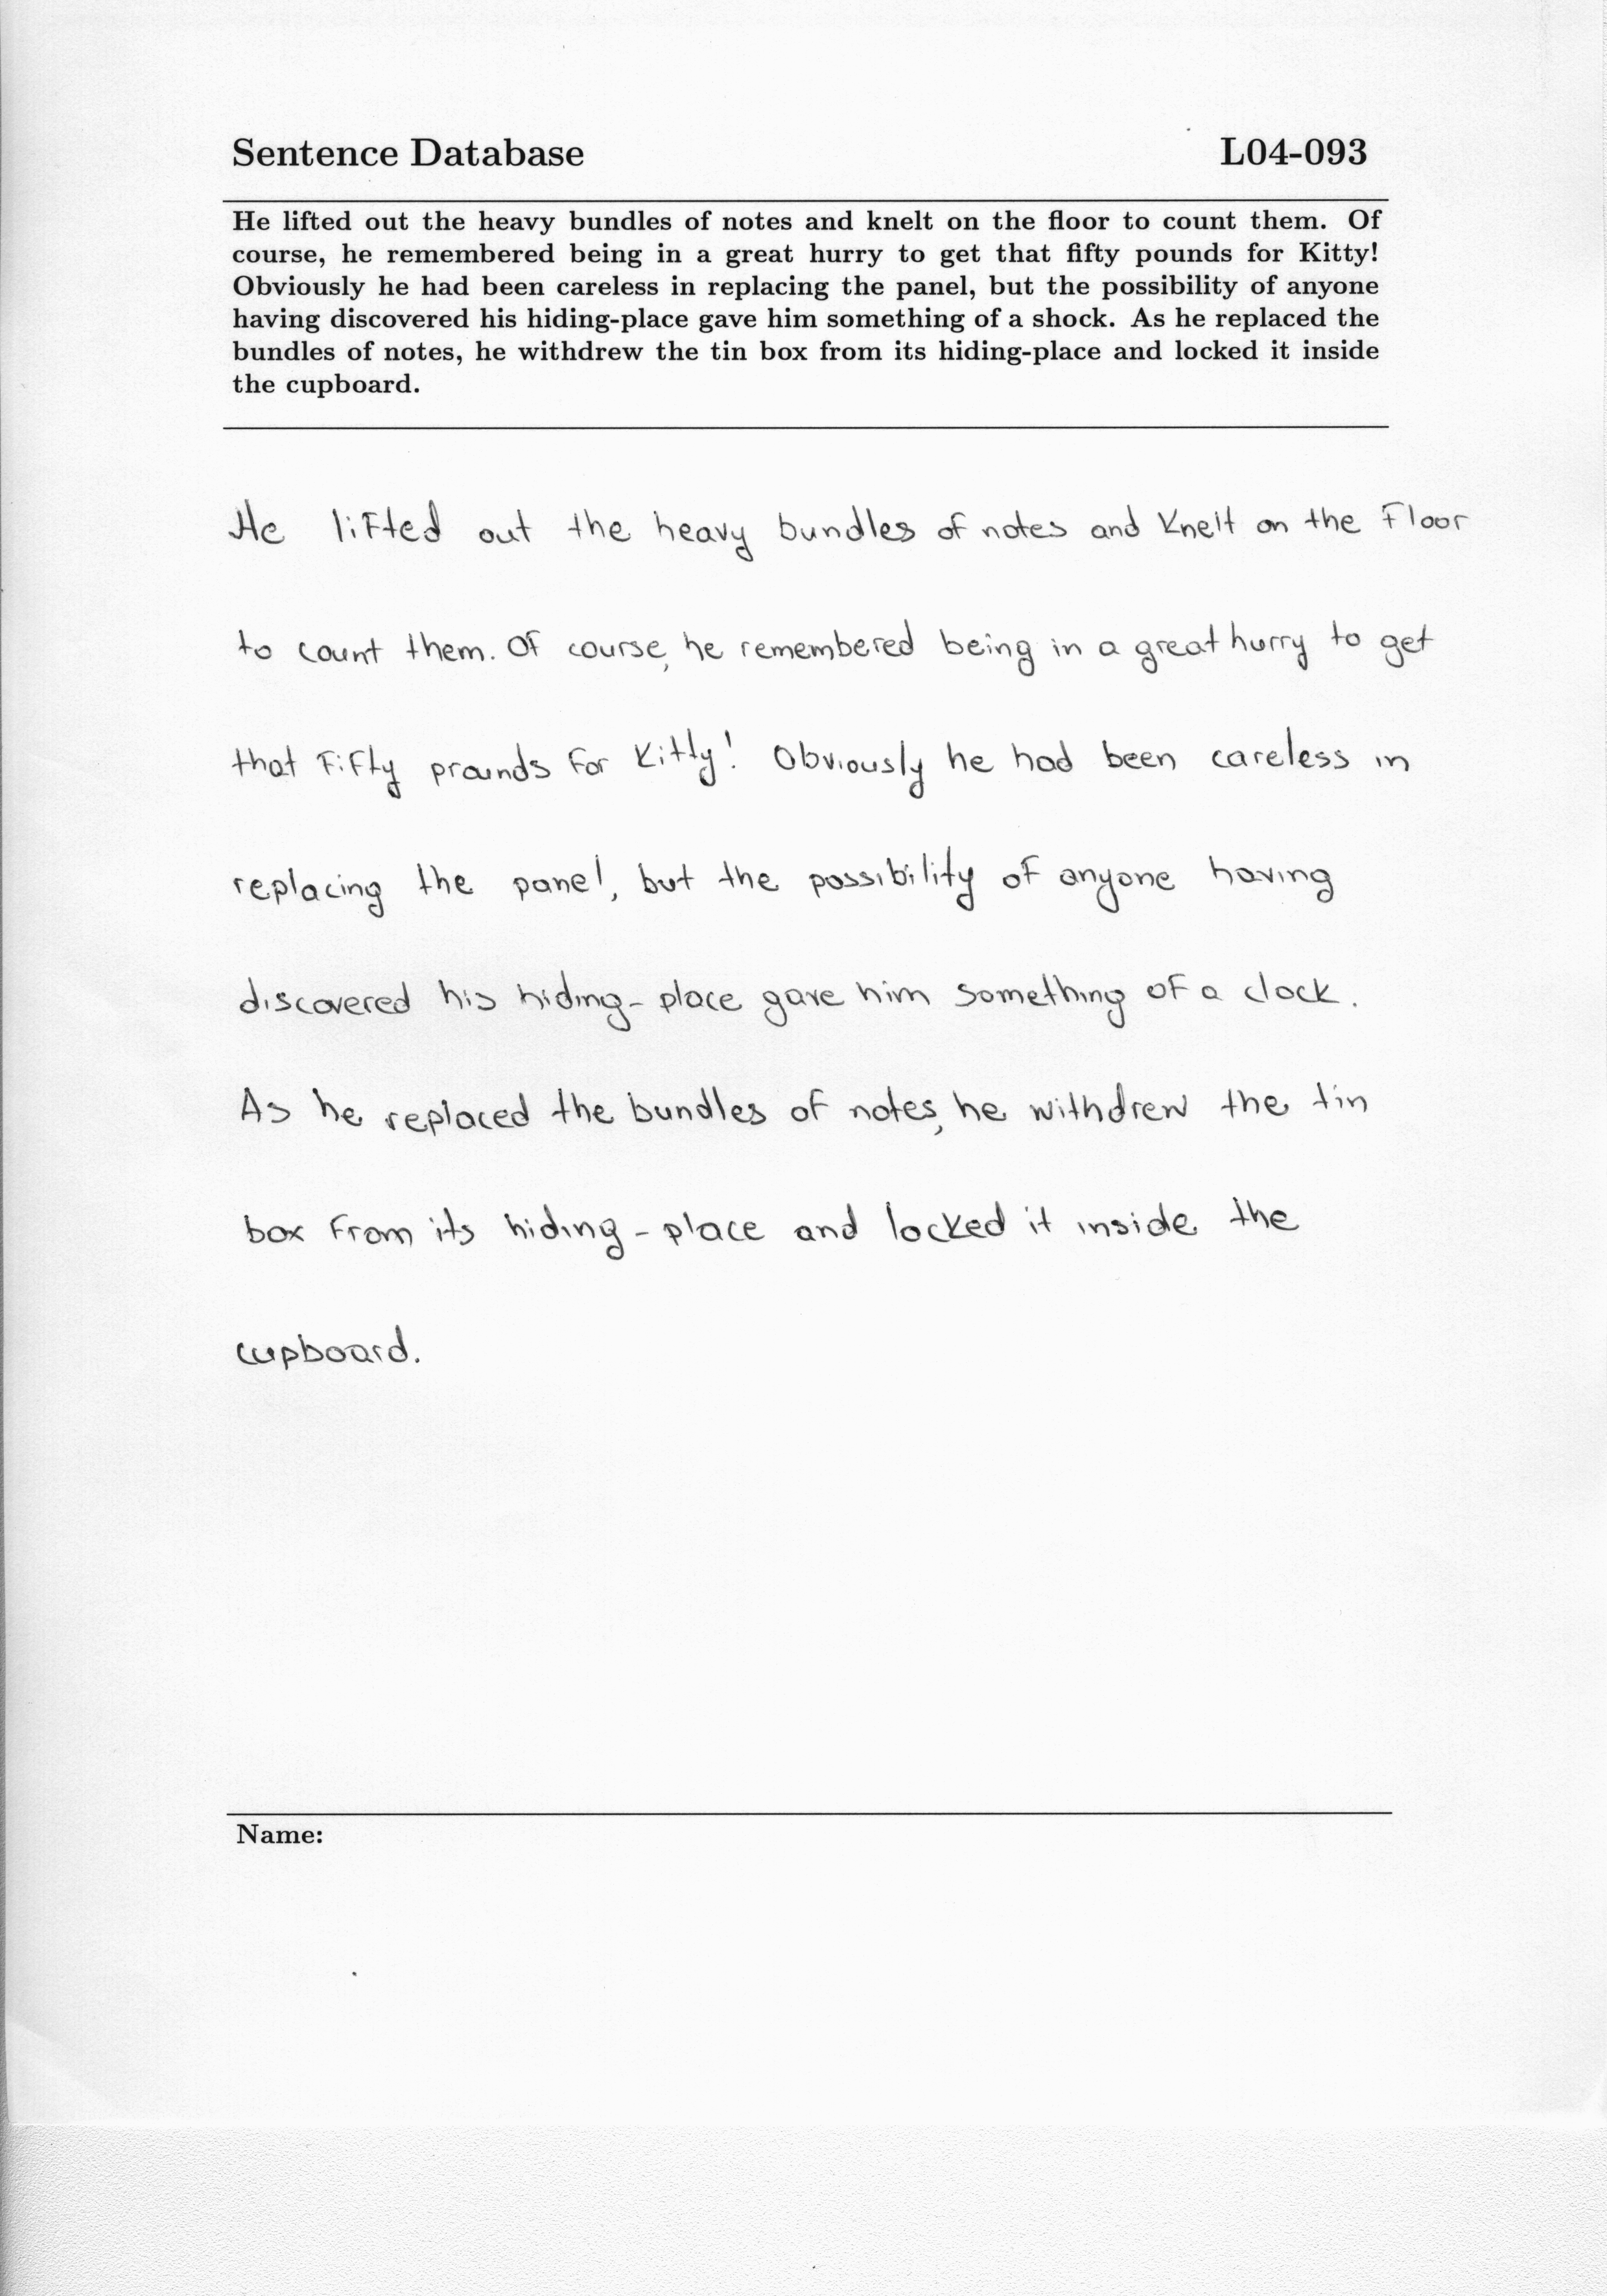 Sentence Database L04-093
He lifted out the heavy bundles of notes and knelt on the floor to count them. Of
course, he remembered being in a great hurry to get that fifty pounds for Kitty!
Obviously he had been careless in replacing the panel, but the possibility of anyone
having discovered his hiding-place gave him something of a shock. As he replaced the
bundles of notes, he withdrew the tin box from its hiding-place and locked it inside
the cupboard.
He lifted out the heavy bundles of notes and knelt on the floor
to count them. Of course, he remembered being in a great hurry to get
that fifty prounds for Kitty! Obviously he had been careless in
replacing the panel, but the possibility of anyone having
discovered his hiding-place gave him something of a clock.
As he replaced the bundles of notes, he withdrew the tin
box from its hiding-place and locked it inside the
cupboard.
Name: